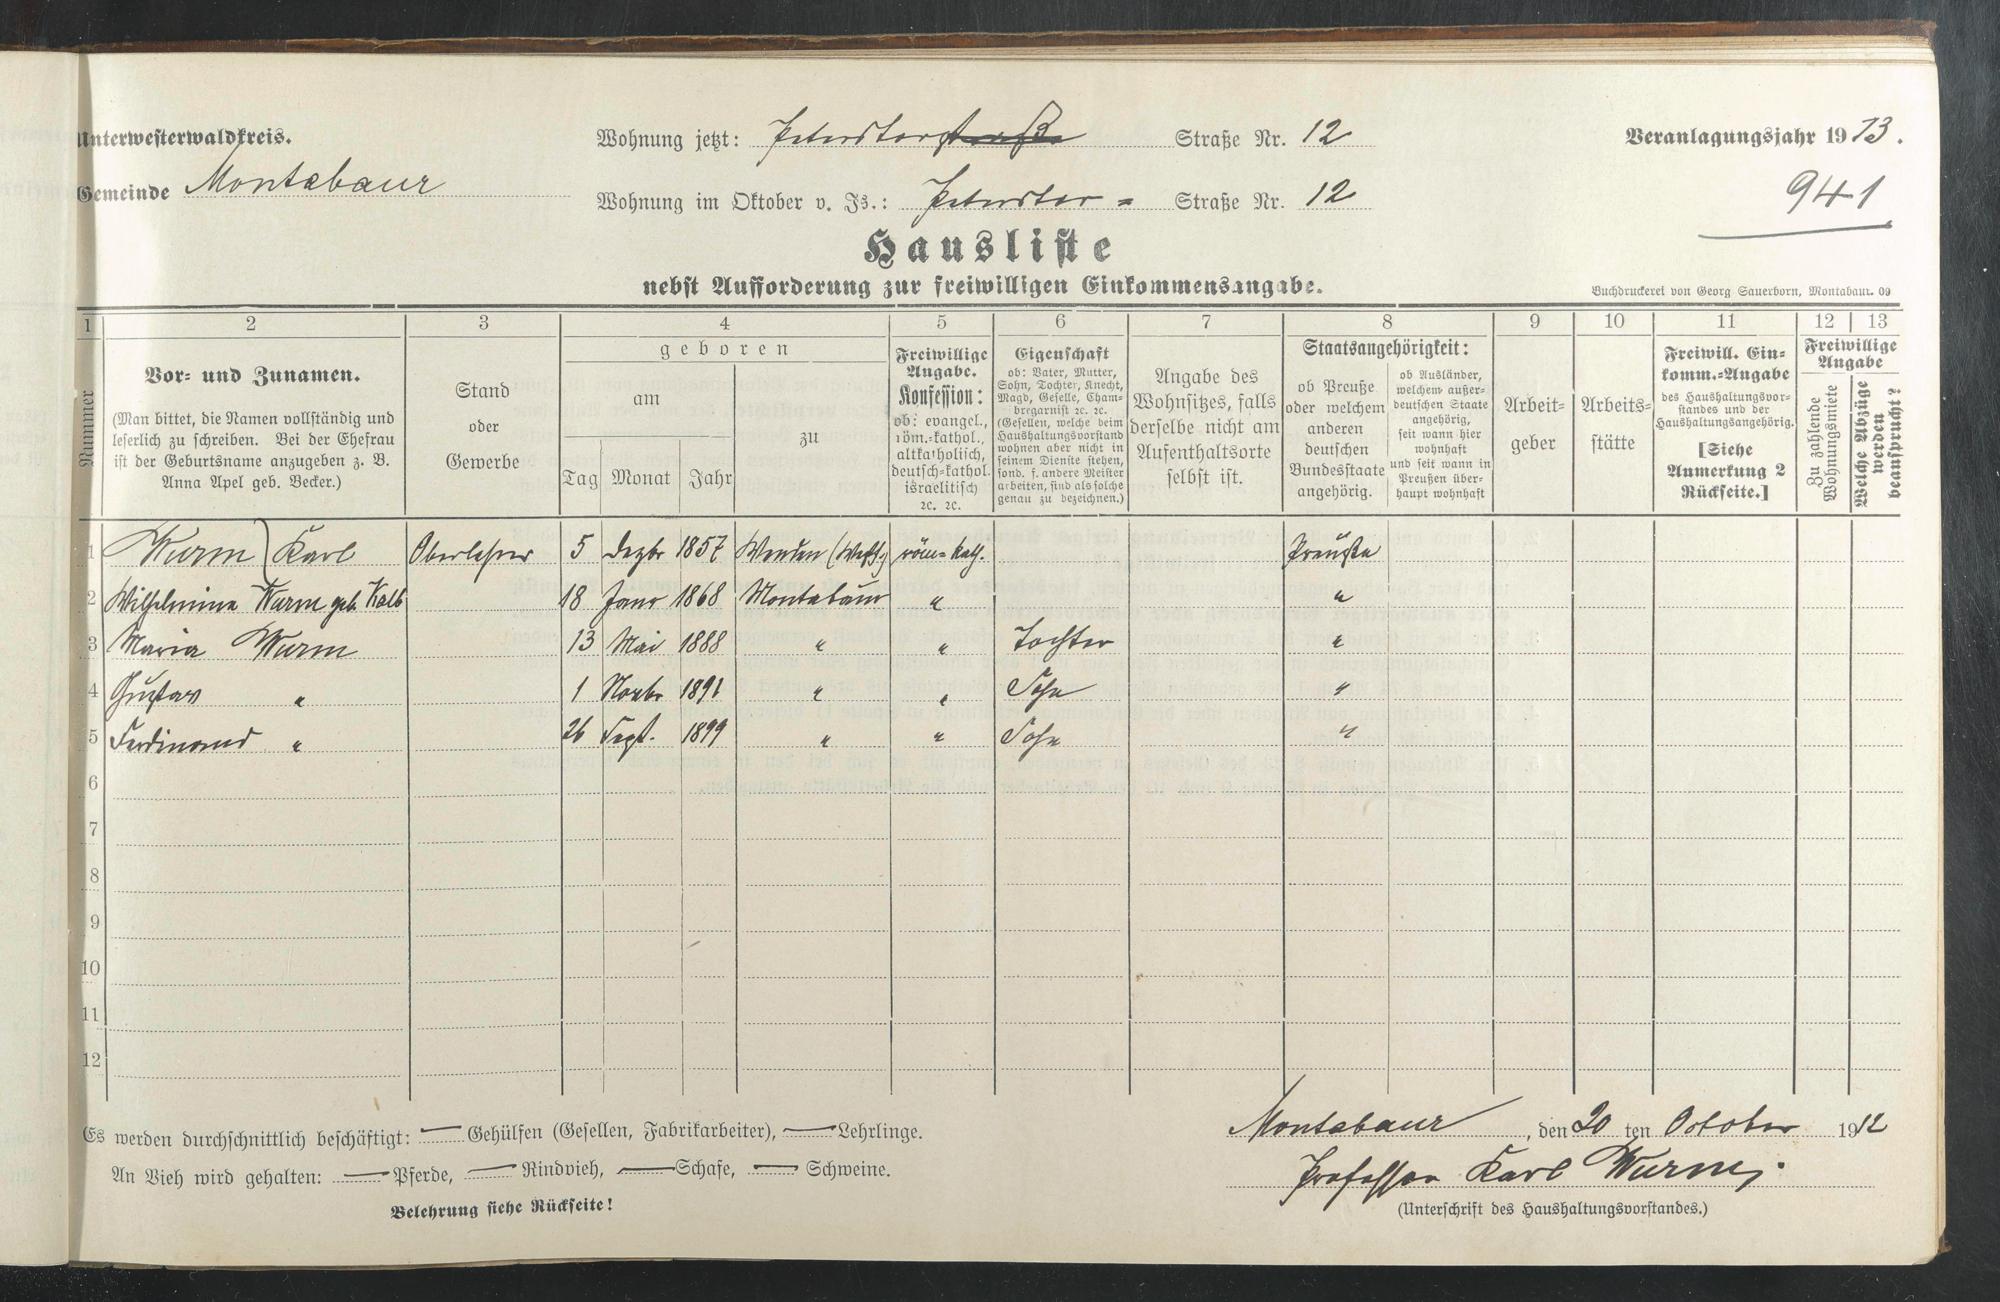 Unterwesterwaldkreis.
Wohnung jetzt: Peterstorstraße Straße Nr. 12
Veranlagungsjahr 1913.
Gemeinde Montabaur
Wohnung im Oktober v. Js.: Peterstor = Straße Nr. 12
941
Hausliste
nebst Aufforderung zur freiwilligen Einkommensangabe.
Buchdruckerei von Georg Sauerborn, Montabaur. 09
1 2 3 4 5 6 7 8 9 10 11 12 13
Nummer
Vor- und Zunamen.
(Man bittet, die Namen vollständig und
leserlich zu schreiben. Bei der Ehefrau
ist der Geburtsname anzugeben z. B.
Anna Apel geb. Becker.)
Stand
oder
Gewerbe
geboren
am
Tag Monat Jahr
zu
Freiwillige
Angabe.
Konfession:
ob: evangel.,
röm.-kathol.,
altkatholisch,
deutsch-kathol.
israelitisch
ꝛc. ꝛc.
Eigenschaft
ob: Vater, Mutter,
Sohn, Tochter, Knecht,
Magd, Geselle, Cham-
bregarnist ꝛc. ꝛc.
(Gesellen, welche beim
Haushaltungsvorstand
wohnen aber nicht in
seinem Dienste stehen,
sond. f. andere Meister
arbeiten, sind als solche
genau zu bezeichnen.)
Angabe des
Wohnsitzes, falls
derselbe nicht am
Aufenthaltsorte
selbst ist.
Staatsangehörigkeit:
ob Preuße
oder welchem
anderen
deutschen
Bundesstaate
angehörig.
ob Ausländer,
welchem außer-
deutschen Staate
angehörig,
seit wann hier
wohnhaft
und seit wann in
Preußen über-
haupt wohnhaft
Arbeit-
geber
Arbeits-
stätte
Freiwill. Ein-
komm.-Angabe
des Haushaltungsvor-
standes und der
Haushaltungsangehörig.
[Siehe
Anmerkung 2
Rückseite.]
Freiwillige
Angabe
Zu zahlende
Wohnungsmiete
Welche Abzüge
werden
beansprucht?
1 Wurm) Karl Oberlehrer 5 Dezbr 1857 Wenden (Westf.) röm=kath. Preuße
2 Wilhelmina Wurm geb. Kalb 18 Janr 1868 Montabaur " "
3 Maria Wurm 13 Mai 1888 " " Tochter "
4 Gustav " 1 Novbr 1891 " " Sohn "
5 Ferdinand " 26 Sept. 1899 " " Sohn "
6
7
8
9
10
11
12
Es werden durchschnittlich beschäftigt: — Gehülfen (Gesellen, Fabrikarbeiter), — Lehrlinge.
An Vieh wird gehalten: — Pferde, — Rindvieh, — Schafe, — Schweine.
Belehrung siehe Rückseite!
Montabaur, den 20 ten October 1912
Professor Karl Wurm.
(Unterschrift des Haushaltungsvorstandes.)